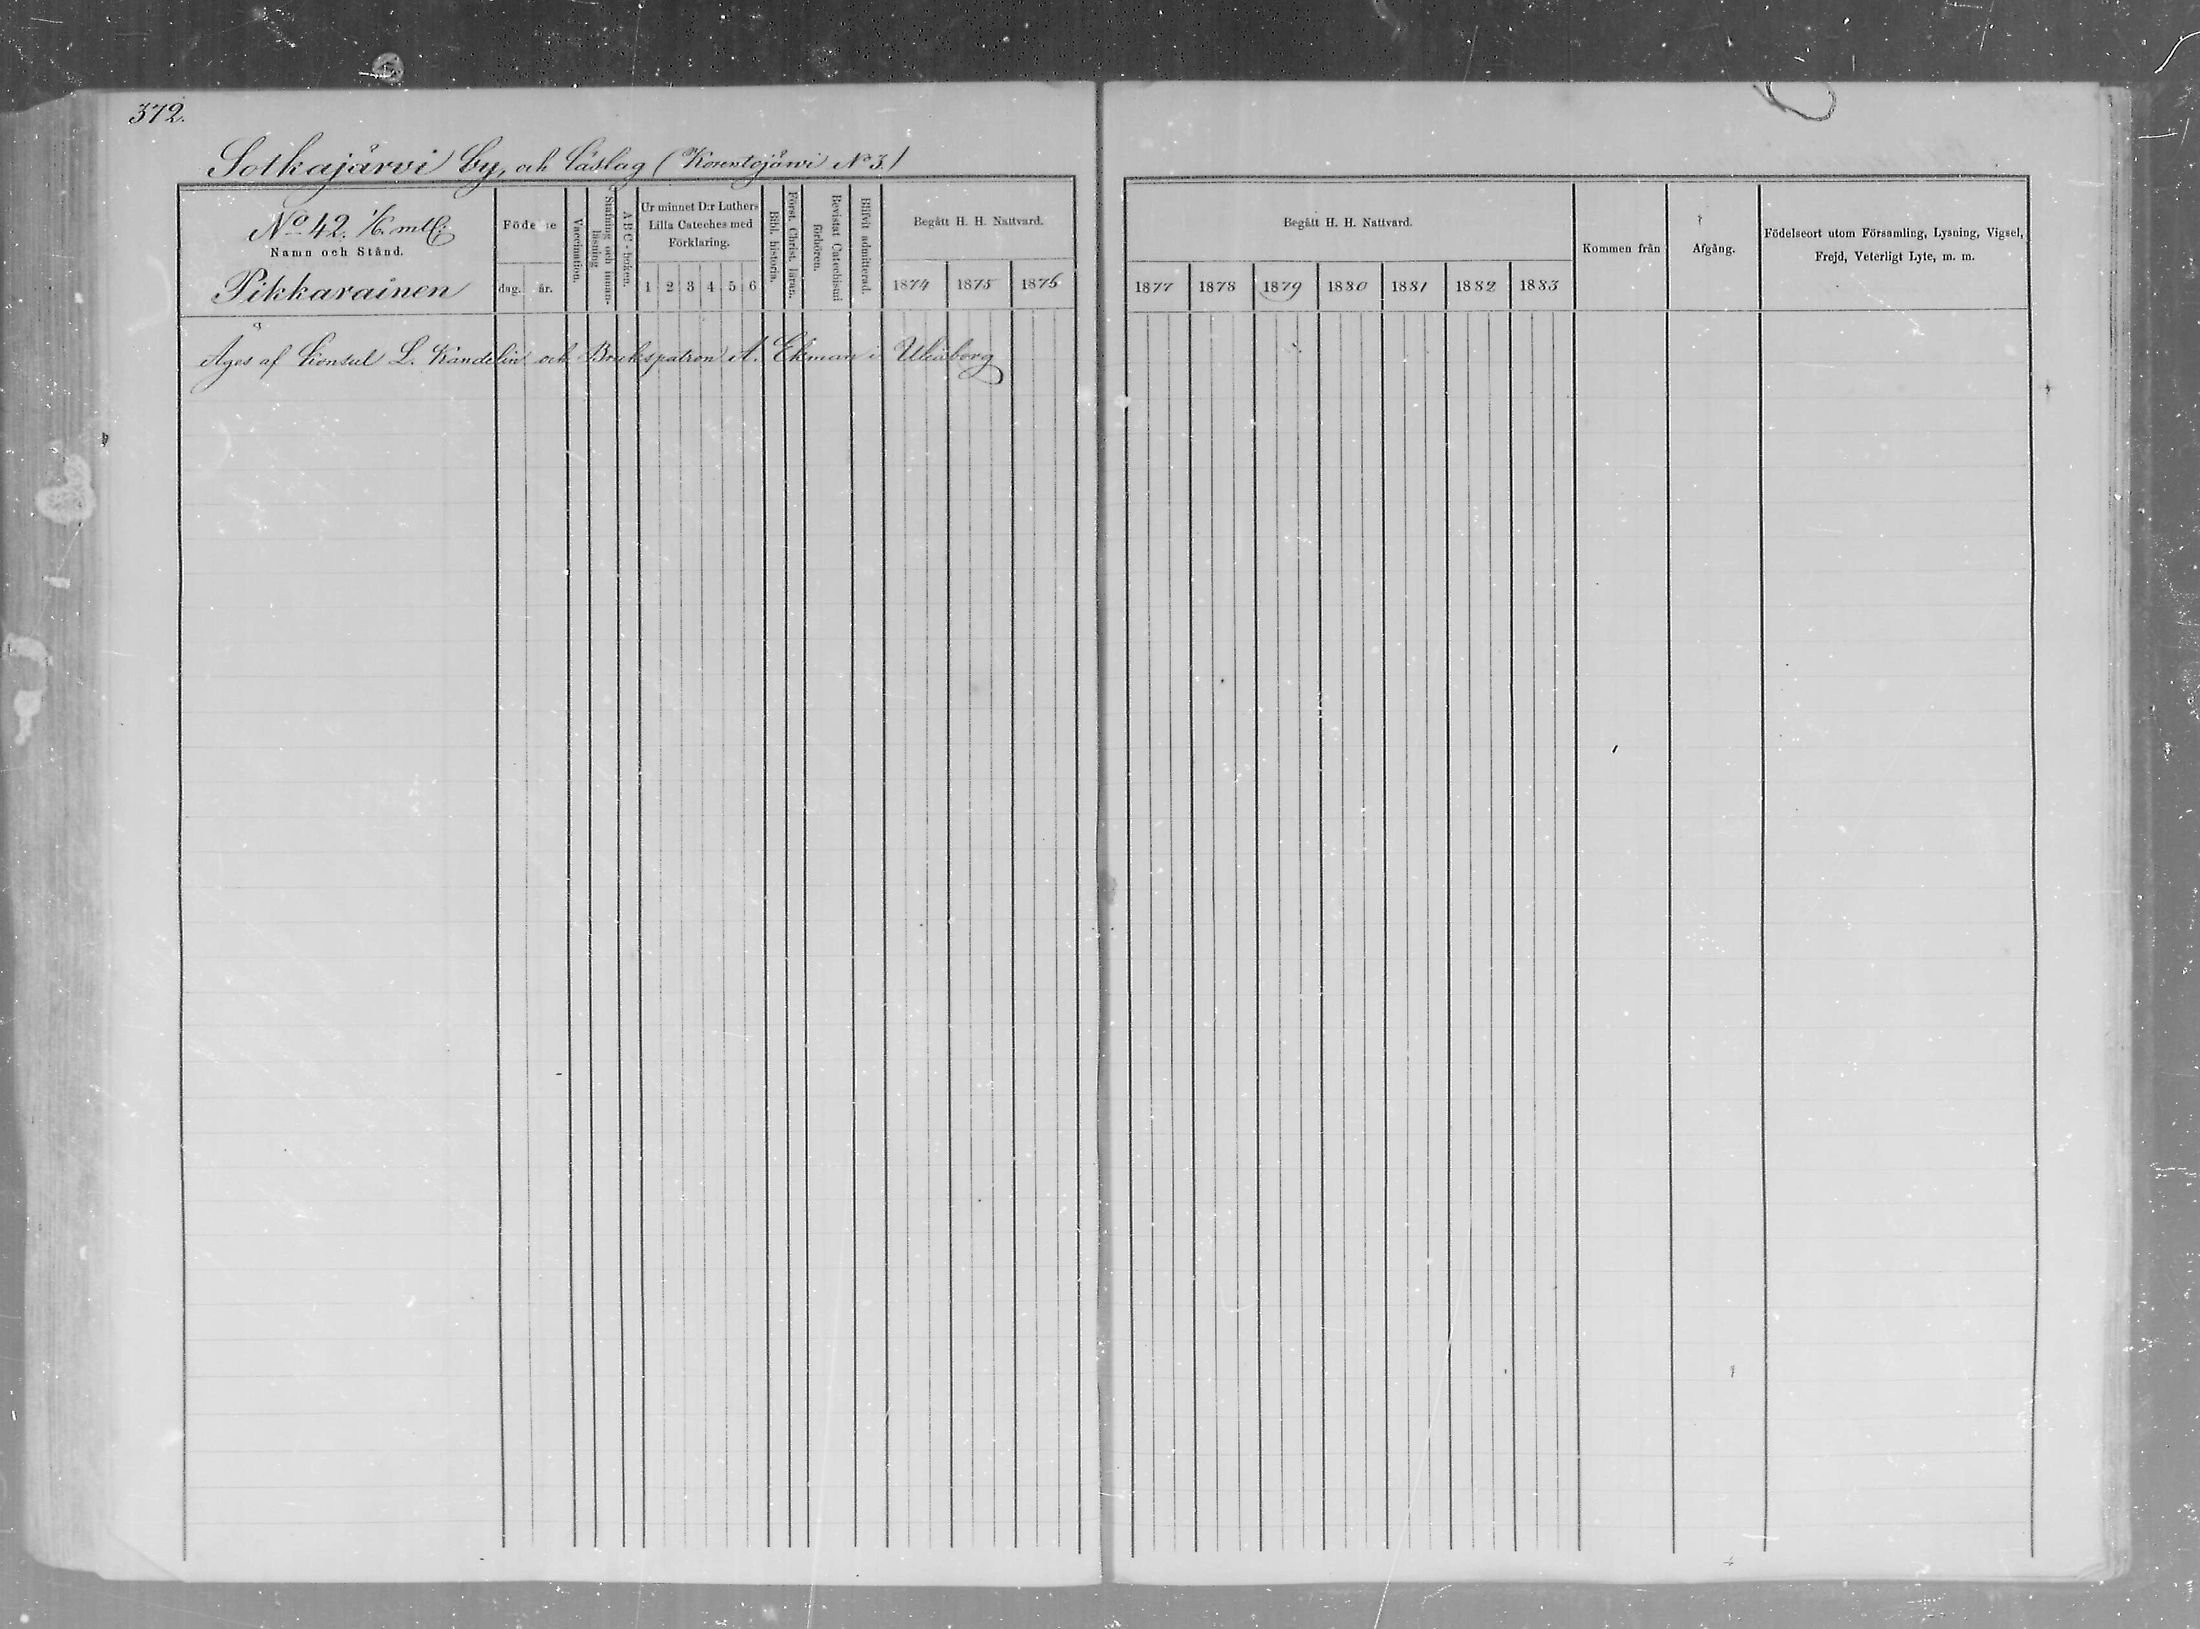 372.
Sotkajärvi by, och läslag (Kouutojärvi No 3.)
No 42. 1/6 mtl:
Namn och Stånd.
Pikkarainen
Födelse
dag. år.
Vaccination.
Stafning och innan-läsning
ABC-boken.
Ur minnet D:r Luthers
Lilla Cateches med
Förklaring.
1 2 3 4 5 6
Bibl. historia.
Först. Christ. läran.
Bevistat Catechismi förhören.
Blifvit admitterad.
Begått H. H. Nattvard.
1874 1875 1876
Begått H. H. Nattvard.
1877 1878 1879 1880 1881 1882 1883
Kommen från
Afgång.
Födelseort utom Församling, Lysning, Vigsel,
Frejd, Veterligt Lyte, m. m.
Äges af Konsul L. Kandelin och Brukspatron A. Ekman i Uleåborg